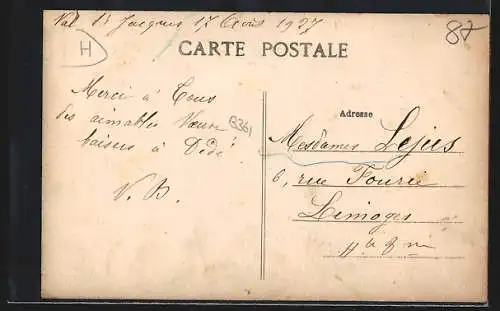 Val St Jacques 17 Août 1927
87
H
CARTE POSTALE
Merci à Tous
des aimables Vœux
baisers à Dédé
V. B.
B361
Adresse
Mesdames Lejus
6, rue Fourie
Limoges
Hte Vne